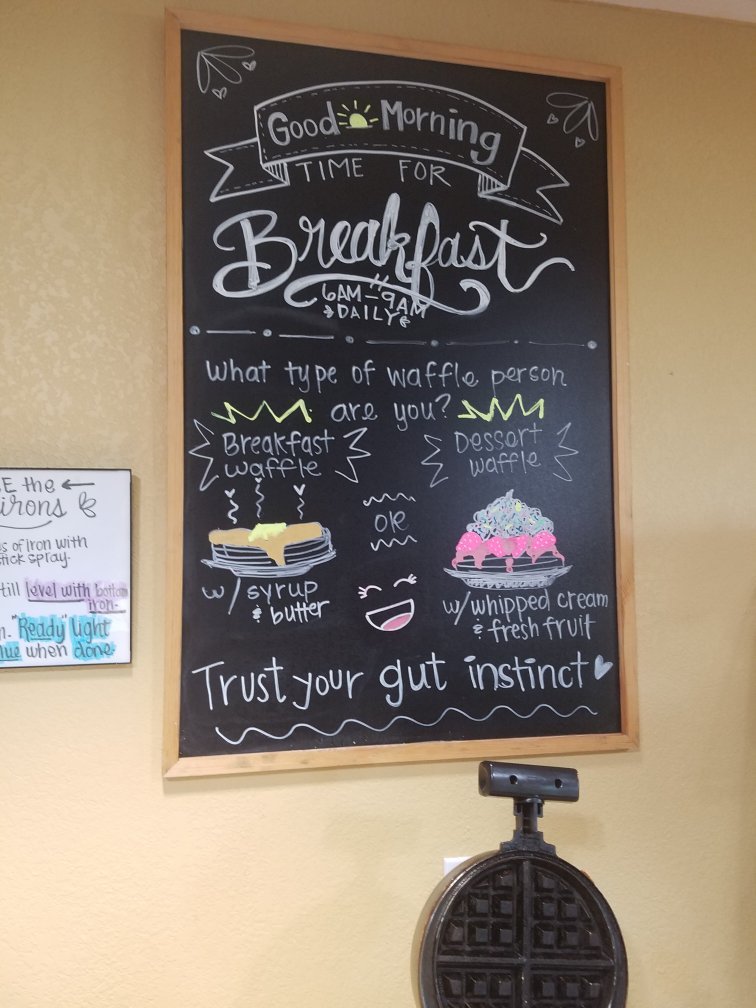 Good Morning
TIME FOR
Breakfast
6AM-9AM
DAILY
what type of waffle person
are you?
Breakfast
waffle
Dessert
waffle
OR
w/ syrup
& butter
w/ whipped cream
& fresh fruit
Trust your gut instinct
the
irons
s of iron with
stick spray.
till level with bottom
iron.
"Ready" light
blue when done.